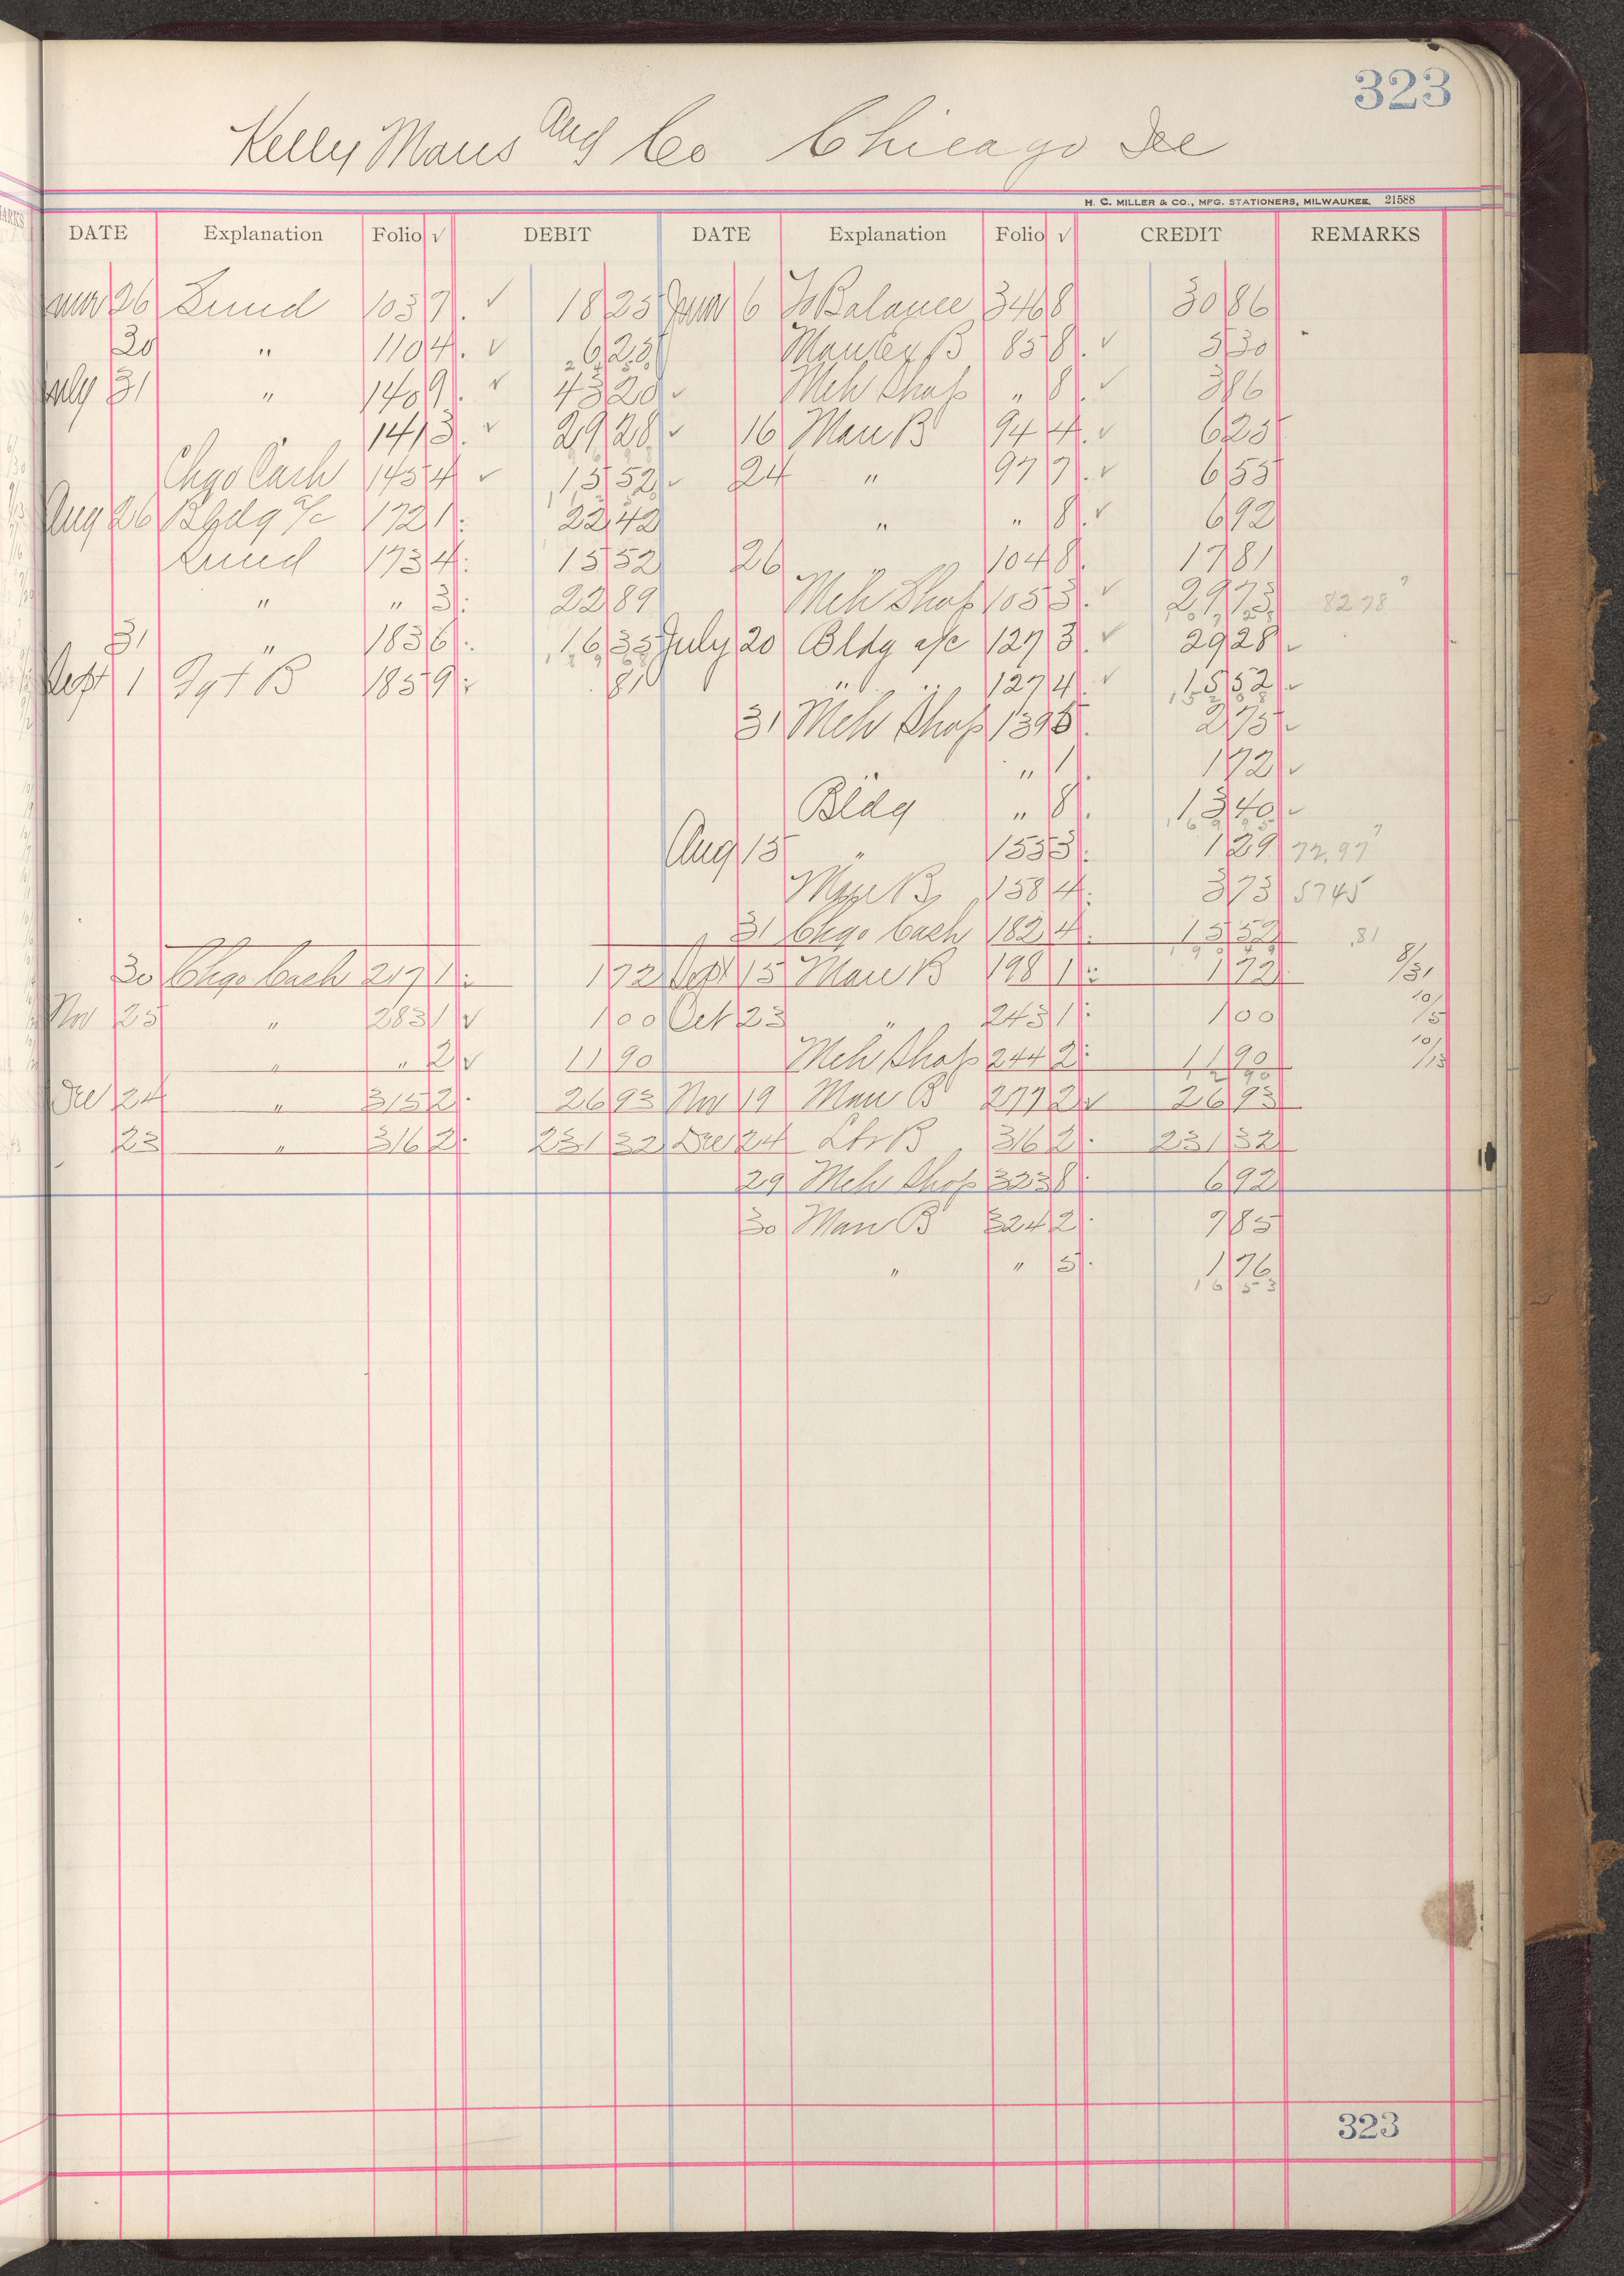 323
Kelly Maus Aug Co Chicago Ill
H. C. MILLER & CO., MFG. STATIONERS, MILWAUKEE. 21588
DATE Explanation Folio √ DEBIT DATE Explanation Folio √ CREDIT REMARKS
26 Lund 1037 ✓ 18 25 June 6 To Balance 3468 30 86
30 " 1104 ✓ 6 25 B 858 ✓ 5 30
July 31 " 1409 ✓ 43 20 ✓ Mch Shop " 8 ✓ 3 86
1413 ✓ 29 28 ✓ 16 Man B 944 ✓ 6 25
Chgo Cash 1454 ✓ 15 52 ✓ 24 " 977 ✓ 6 55
Aug 26 Bldg a/c 1721 22 42 " " 8 ✓ 6 92
Lund 1734 15 52 26 " 1048 17 81
" " 3 22 89 Mch Shop 1053 ✓ 29 73 82 78
31 " 1836 16 35 July 20 Bldg a/c 1273 ✓ 29 28 ✓
Sept 1 Fgt B 1859 81 " " 1274 ✓ 15 52 ✓
31 Mch Shop 1395 2 75 ✓
" 1 1 72 ✓
Bldg " 8 13 40 ✓
Aug 15 " 1553 1 29 72.97
Man B 1584 3 73 57 45
31 Chgo Cash 1824 15 52 .81
30 Chgo Cash 2171 1 72 Sept 15 Man B 1981 1 72 8/31
Nov 25 " 2831 ✓ 1 00 Oct 23 " 2431 1 00 10/5
" " 2 ✓ 11 90 Mch Shop 2442 11 90 10/13
Dec 24 " 3152 26 93 Nov 19 Man B 2772 ✓ 26 93
23 " 3162 231 32 Dec 24 B 3162 231 32
29 Mch Shop 3238 6 92
30 Man B 3242 7 85
" " 5 1 76
16 53
323